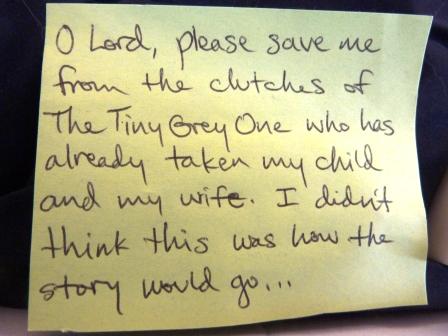 O Lord, please save me
from the clutches of
The Tiny Grey One who has
already taken my child
and my wife. I didn't
think this was how the
story would go...